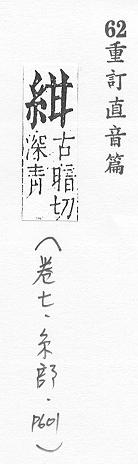 62重訂直音篇
紺古暗切
深青
(卷七·糸部·P601)